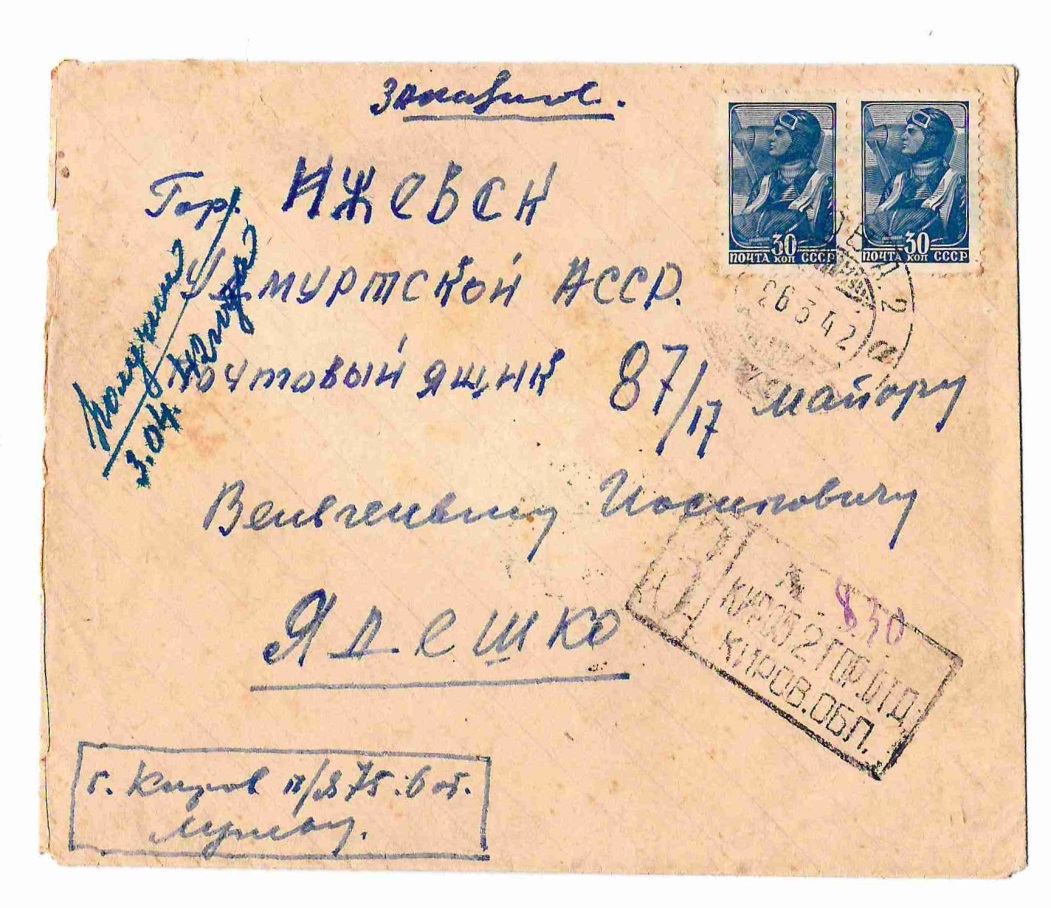 Заказное.
30 30
ПОЧТА КОП СССР ПОЧТА КОП СССР
26 3 42
Гор. ИЖЕВСК
Удмуртской АССР.
Почтовый ящик 87/17 майору
Иосиповичу
ЯДЕШКО
Получил
3.04. 42 года
З
№ 830
КИРОВ-2 ГОР.ОТД.
КИРОВ.ОБЛ.
г. Киров п/я 75